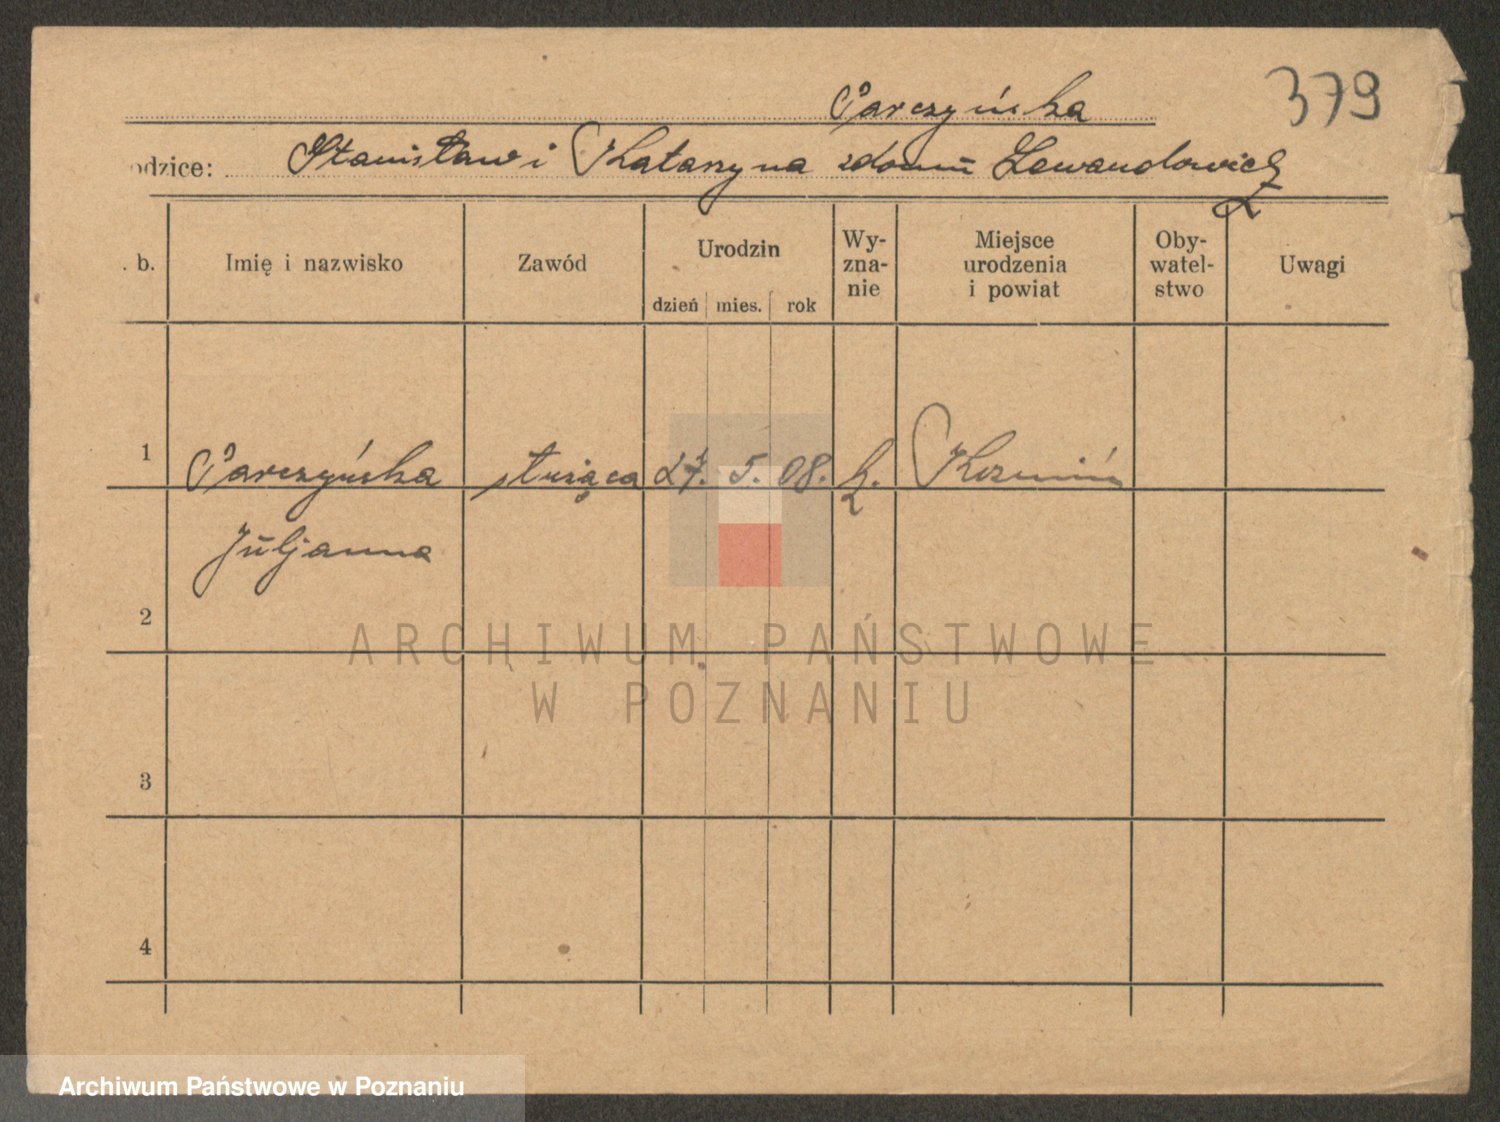 Parczyńska 379
odzice: Stanisław i Katarzyna zdomu Lewandowicz
. b. Imię i nazwisko Zawód Urodzin dzień mies. rok Wy-zna-nie Miejsce urodzenia i powiat Oby-watel-stwo Uwagi
1 Parczyńska służąca 27. 5. 08. k. Koźmin
Juljanna
2
ARCHIWUM PAŃSTWOWE
W POZNANIU
3
4
Archiwum Państwowe w Poznaniu